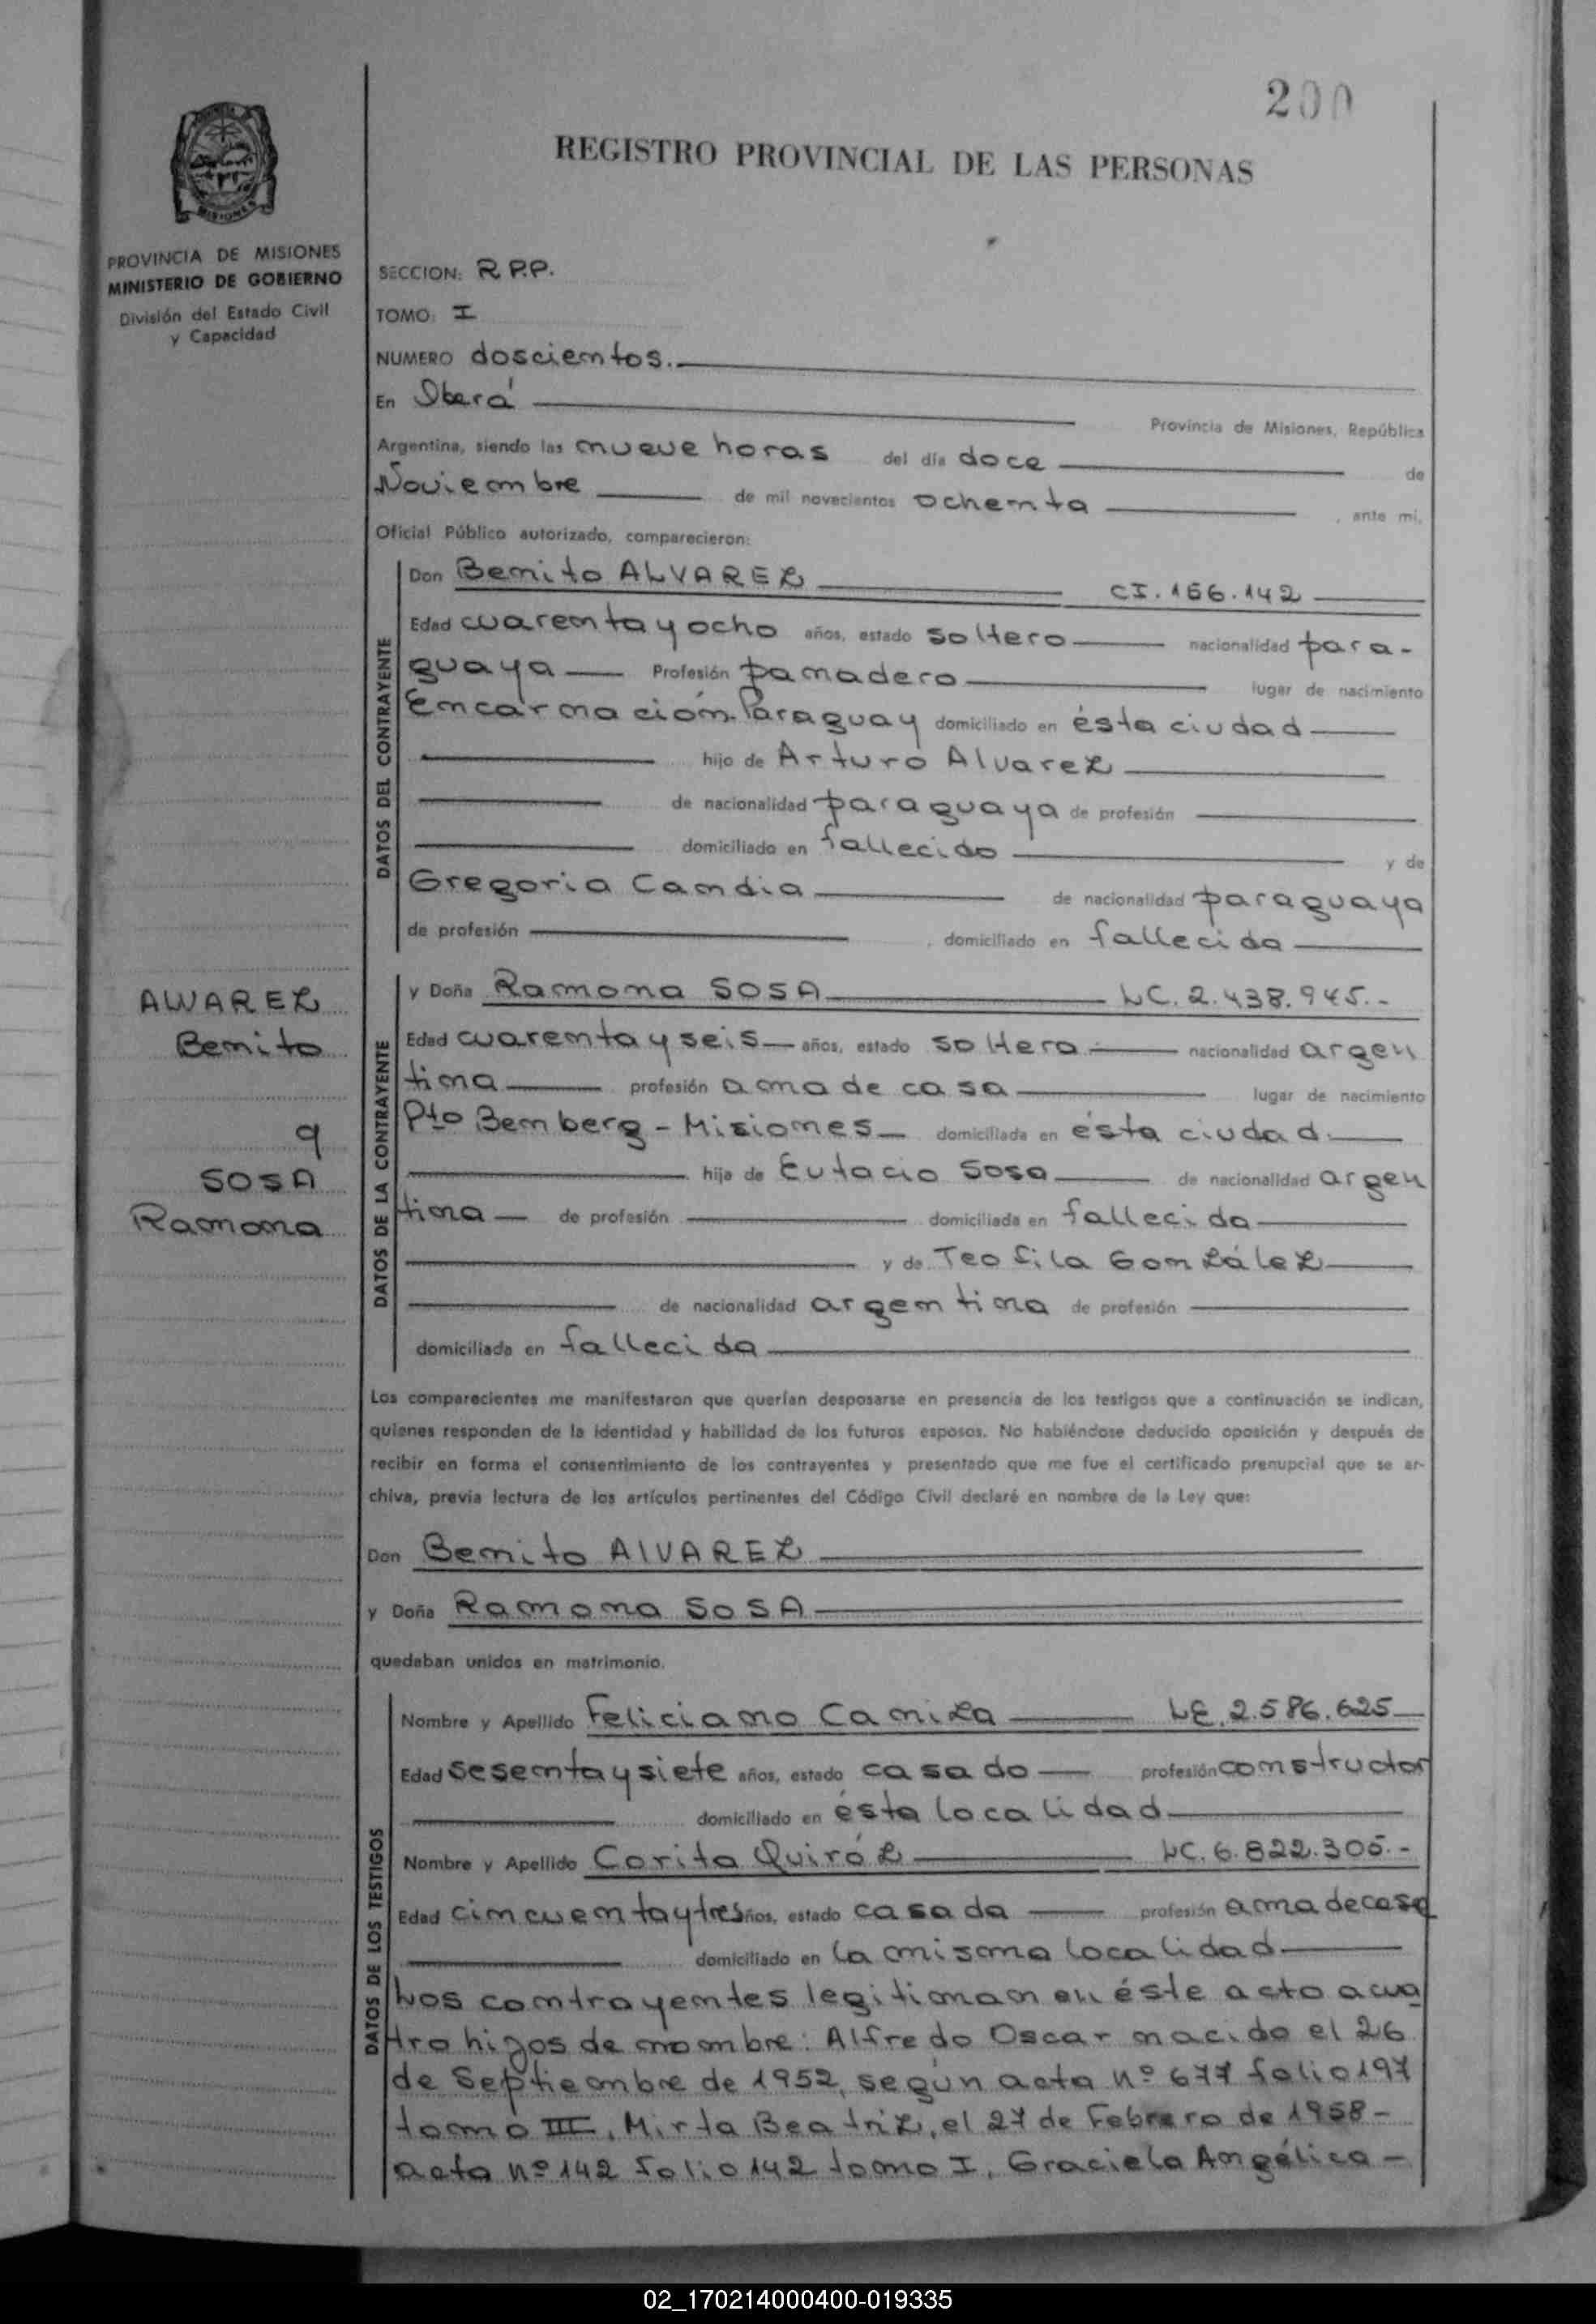 200
REGISTRO PROVINCIAL DE LAS PERSONAS
MISIONES
PROVINCIA DE MISIONES
MINISTERIO DE GOBIERNO
División del Estado Civil
y Capacidad
SECCION: R.P.P.
TOMO: I
NUMERO doscientos.
En Oberá
Provincia de Misiones, República
Argentina, siendo las nueve horas del día doce de
Noviembre de mil novecientos ochenta, ante mi,
Oficial Público autorizado, comparecieron:
DATOS DEL CONTRAYENTE
Don Benito ALVAREZ CI. 156.142
Edad cuarenta y ocho años, estado soltero nacionalidad para-
guaya Profesión panadero lugar de nacimiento
Encarnación-Paraguay domiciliado en ésta ciudad
hijo de Arturo Alvarez
de nacionalidad paraguaya de profesión
domiciliado en fallecido y de
Gregoria Candia de nacionalidad paraguaya
de profesión , domiciliado en fallecida
ALVAREZ
Benito
y
SOSA
Ramona
DATOS DE LA CONTRAYENTE
y Doña Ramona SOSA LC. 2.438.945.-
Edad cuarenta y seis años, estado soltera nacionalidad argen
tina profesión ama de casa lugar de nacimiento
Pto Bemberg - Misiones domiciliada en ésta ciudad.
hija de Eutacio Sosa de nacionalidad argen
tina de profesión domiciliada en fallecido
y de Teofila González
de nacionalidad argentina de profesión
domiciliada en fallecida
Los comparecientes me manifestaron que querían desposarse en presencia de los testigos que a continuación se indican,
quienes responden de la identidad y habilidad de los futuros esposos. No habiéndose deducido oposición y después de
recibir en forma el consentimiento de los contrayentes y presentado que me fue el certificado prenupcial que se ar-
chiva, previa lectura de los artículos pertinentes del Código Civil declaré en nombre de la Ley que:
Don Benito AlVAREZ
y Doña Ramona SOSA
quedaban unidos en matrimonio.
DATOS DE LOS TESTIGOS
Nombre y Apellido Feliciano Caniza LE. 2.586.625
Edad sesenta y siete años, estado casado profesión constructor
domiciliado en ésta localidad
Nombre y Apellido Corita Quiróz LC. 6.822.305.-
Edad cincuenta y tres años, estado casada profesión ama de casa
domiciliado en la misma localidad
Los contrayentes legitiman en éste acto a cua
tro hijos de nombre: Alfredo Oscar nacido el 26
de Septiembre de 1952, según acta nº 677 folio 197
tomo III, Mirta Beatriz, el 27 de Febrero de 1958-
acta nº 142 folio 142 tomo I, Graciela Angélica -
02_170214000400-019335